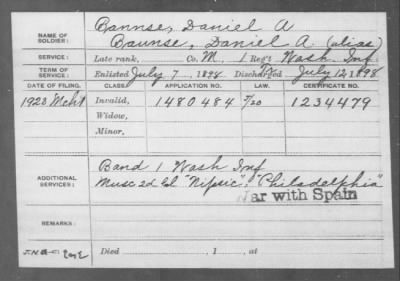 NAME OF SOLDIER:
Bannse, Daniel A
Baunse, Daniel A. (alias)
SERVICE: Late rank, Co. M, 1 Reg't Wash. Inf.
TERM OF SERVICE: Enlisted July 7, 1898. Discharged July 12, 1898
DATE OF FILING. CLASS. APPLICATION NO. LAW. CERTIFICATE NO.
1920 Mch 1 Invalid, 1480484 1234479
Widow,
Minor,
ADDITIONAL SERVICES:
Band 1 Wash Inf
Musc 2d Cl "Nipsic", "Philadelphia"
War with Spain
REMARKS:
Died , 1 , at